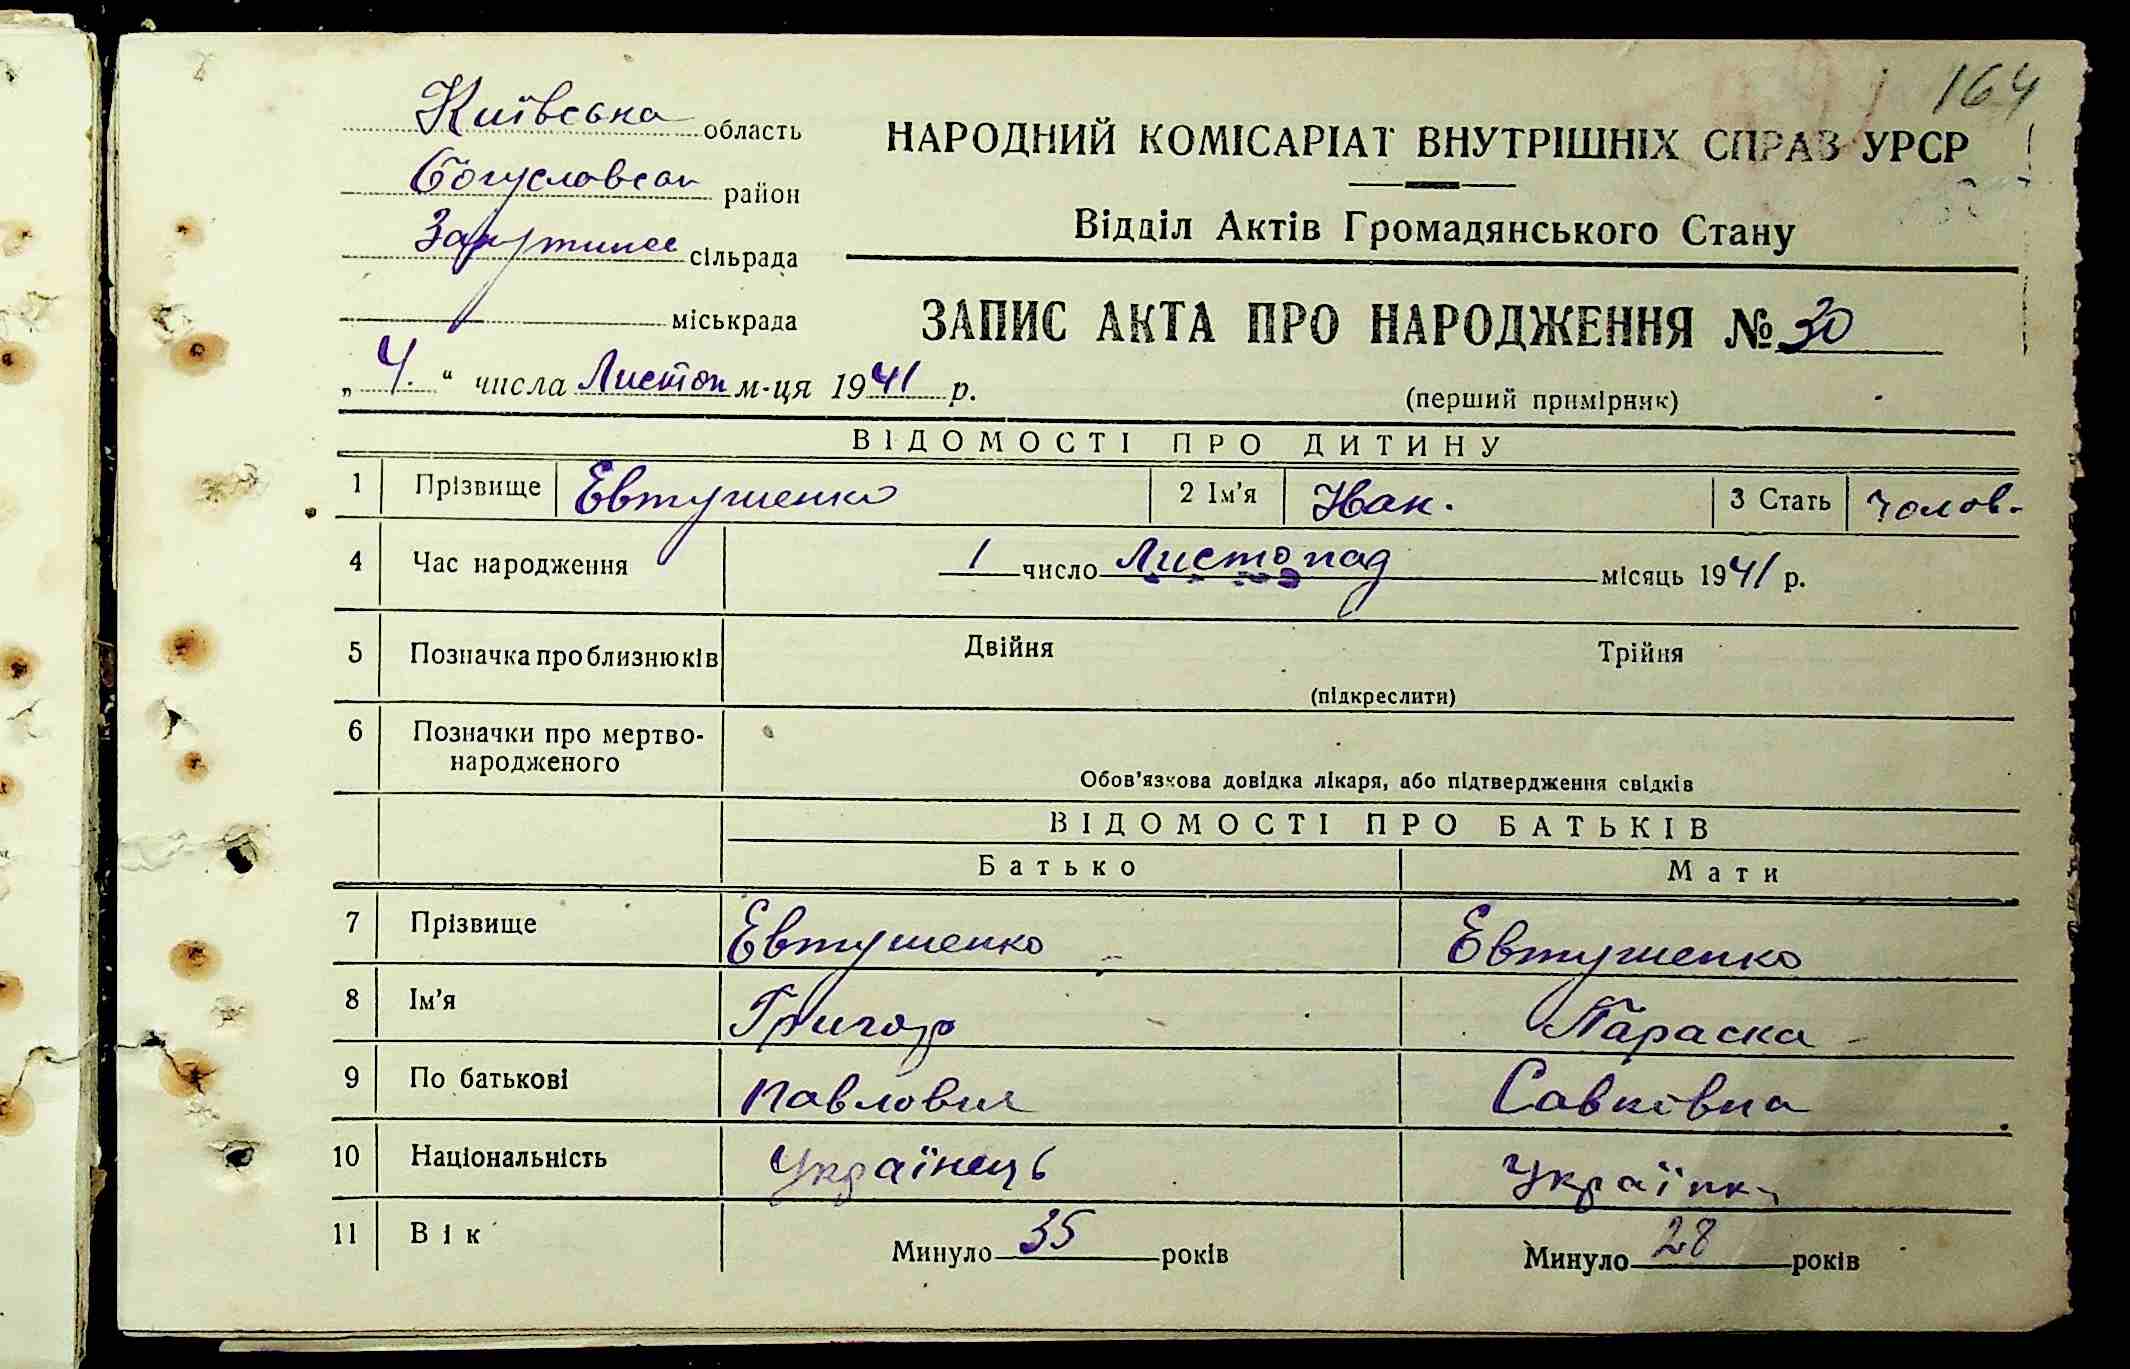 164
Київська область
Богуславськ район
сільрада
міськрада
НАРОДНИЙ КОМІСАРІАТ ВНУТРІШНІХ СПРАВ УРСР
Відділ Актів Громадянського Стану
ЗАПИС АКТА ПРО НАРОДЖЕННЯ № 30
„ 4. “ числа Листоп м-ця 1941 р.
(перший примірник)
ВІДОМОСТІ ПРО ДИТИНУ
1 Прізвище Евтушенко 2 Ім'я 3 Стать Чолов.
4 Час народження 1 число Листопад місяць 1941 р.
5 Позначка про близнюків Двійня Трійня
(підкреслити)
6 Позначки про мертво-
народженого
Обов'язкова довідка лікаря, або підтвердження свідків
ВІДОМОСТІ ПРО БАТЬКІВ
Батько Мати
7 Прізвище Евтушенко Евтушенко
8 Ім'я Григор Параска
9 По батькові Павлович Савківна
10 Національність Українець Українка
11 Вік Минуло 35 років Минуло 28 років